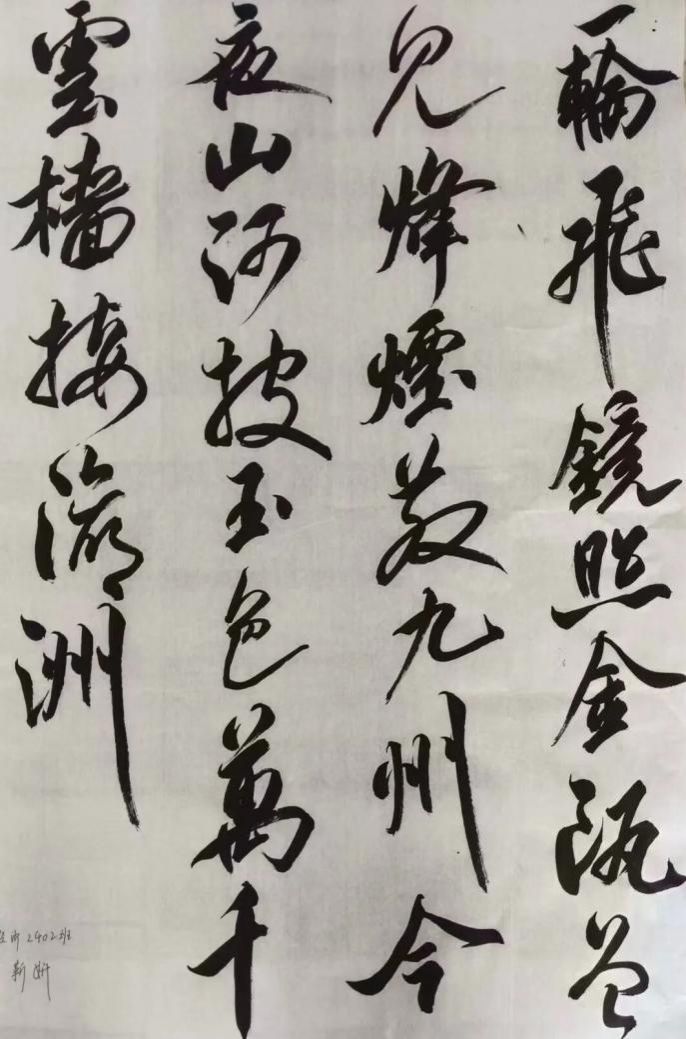 一輪飛鏡照金甌曾
見烽煙散九州今
夜山河披玉色萬千
雲檣接瀛洲
2402班
靳妍